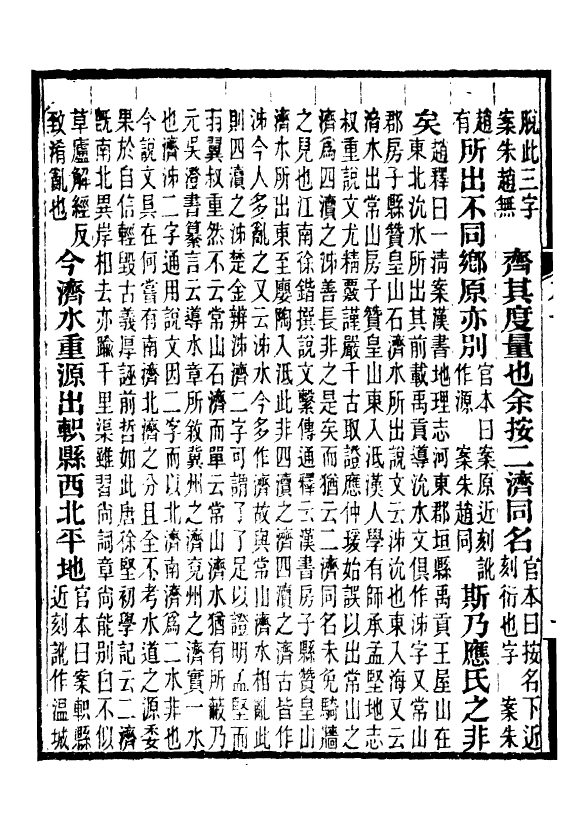 脫此三字
案朱趙無
齊其度量也余按二濟同名
官本曰按名下近
刻衍也字　案朱
趙
有
所出不同鄉原亦別
官本曰案原近刻訛
作源　案朱趙同
斯乃應氏之非
矣
趙釋曰一清案漢書地理志河東郡垣縣禹貢王屋山在
東北沇水所出其前載禹貢導沇水文俱作泲字又常山
郡房子縣贊皇山石濟水所出說文云泲沇也東入海又云
濟水出常山房子贊皇山東入泜漢人學有師承孟堅地志
叔重說文尤精覈謹嚴千古取證應仲瑗始誤以出常山之
濟為四瀆之泲善長非之是矣而猶云二濟同名未免騎牆
之見也江南徐鍇撰說文繫傳通釋云漢書房子縣贊皇山
濟水所出東至廮陶入泜此非四瀆之濟四瀆之濟古皆作
泲今人多亂之又云泲水今多作濟故與常山濟水相亂此
則四瀆之泲楚金辨泲濟二字可謂了了足以證明孟堅而
羽翼叔重然不云常山石濟而單云常山濟水猶有所蔽乃
元吳澄書纂言云導水章所敘冀州之濟兗州之濟實一水
也濟泲二字通用說文因二字而以北濟南濟為二水非也
今說文具在何嘗有南濟北濟之分且全不考水道之源委
果於自信輕毀古義厚誣前哲如此唐徐堅初學記云二濟
既南北異岸相去亦踰千里渠雖習尚詞章尚能別白不似
草廬解經反
致淆亂也
今濟水重源出軹縣西北平地
官本曰案軹縣
近刻訛作溫城